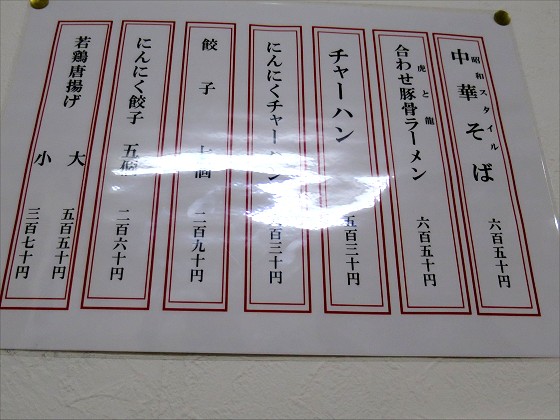 昭和スタイル
中華そば
六百五十円
虎と龍
合わせ豚骨ラーメン
六百五十円
チャーハン
五百三十円
にんにくチャーハン
百三十円
餃子
個
二百九十円
にんにく餃子 五個
二百六十円
若鶏唐揚げ
大 五百五十円
小 三百七十円